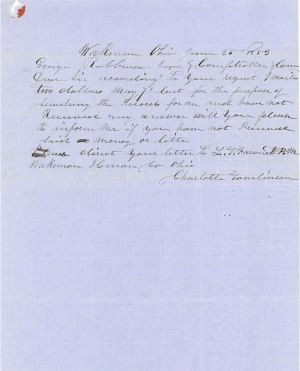 Wakeman Ohio June 25 1853
George Robbinson Esqr Comptroller Conn
Dear Sir according to your request I mailed
two dollars May last for the purpose of
searching the records for me and have not
Received any answer will you please
to inform me if you have not Received
said money or letter
Please direct your letter to P.M.
Wakeman Huron Co Ohio
Charlotte Tomlinson